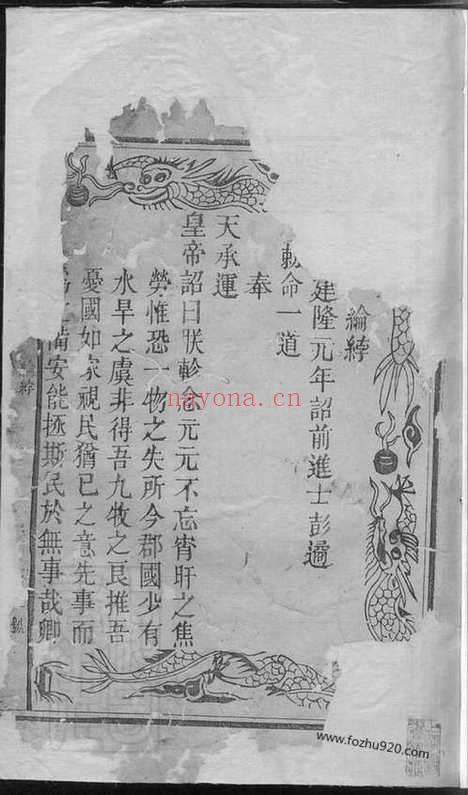 綸綍
建隆元年詔前進士彭遹
勅命一道
奉
天承運
皇帝詔曰朕軫念元元不忘宵旰之焦
勞惟恐一物之失所今郡國少有
水旱之虞非得吾九牧之良推吾
憂國如家視民猶己之意先事而
為之備安能拯斯民於無事哉卿
綍
nayona.cn
www.fozhu920.com